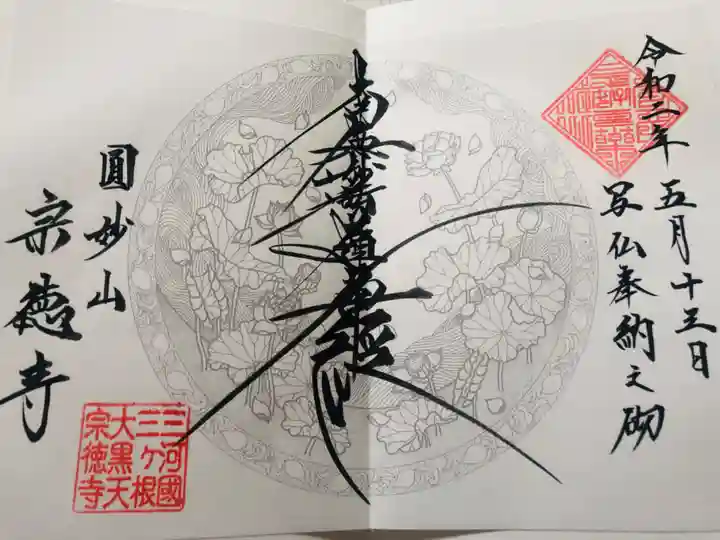 令和二年五月十三日
写仏奉納之砌
南無妙法蓮華経
圓妙山
宗徳寺
三河國
三ヶ根
大黒天
宗徳寺